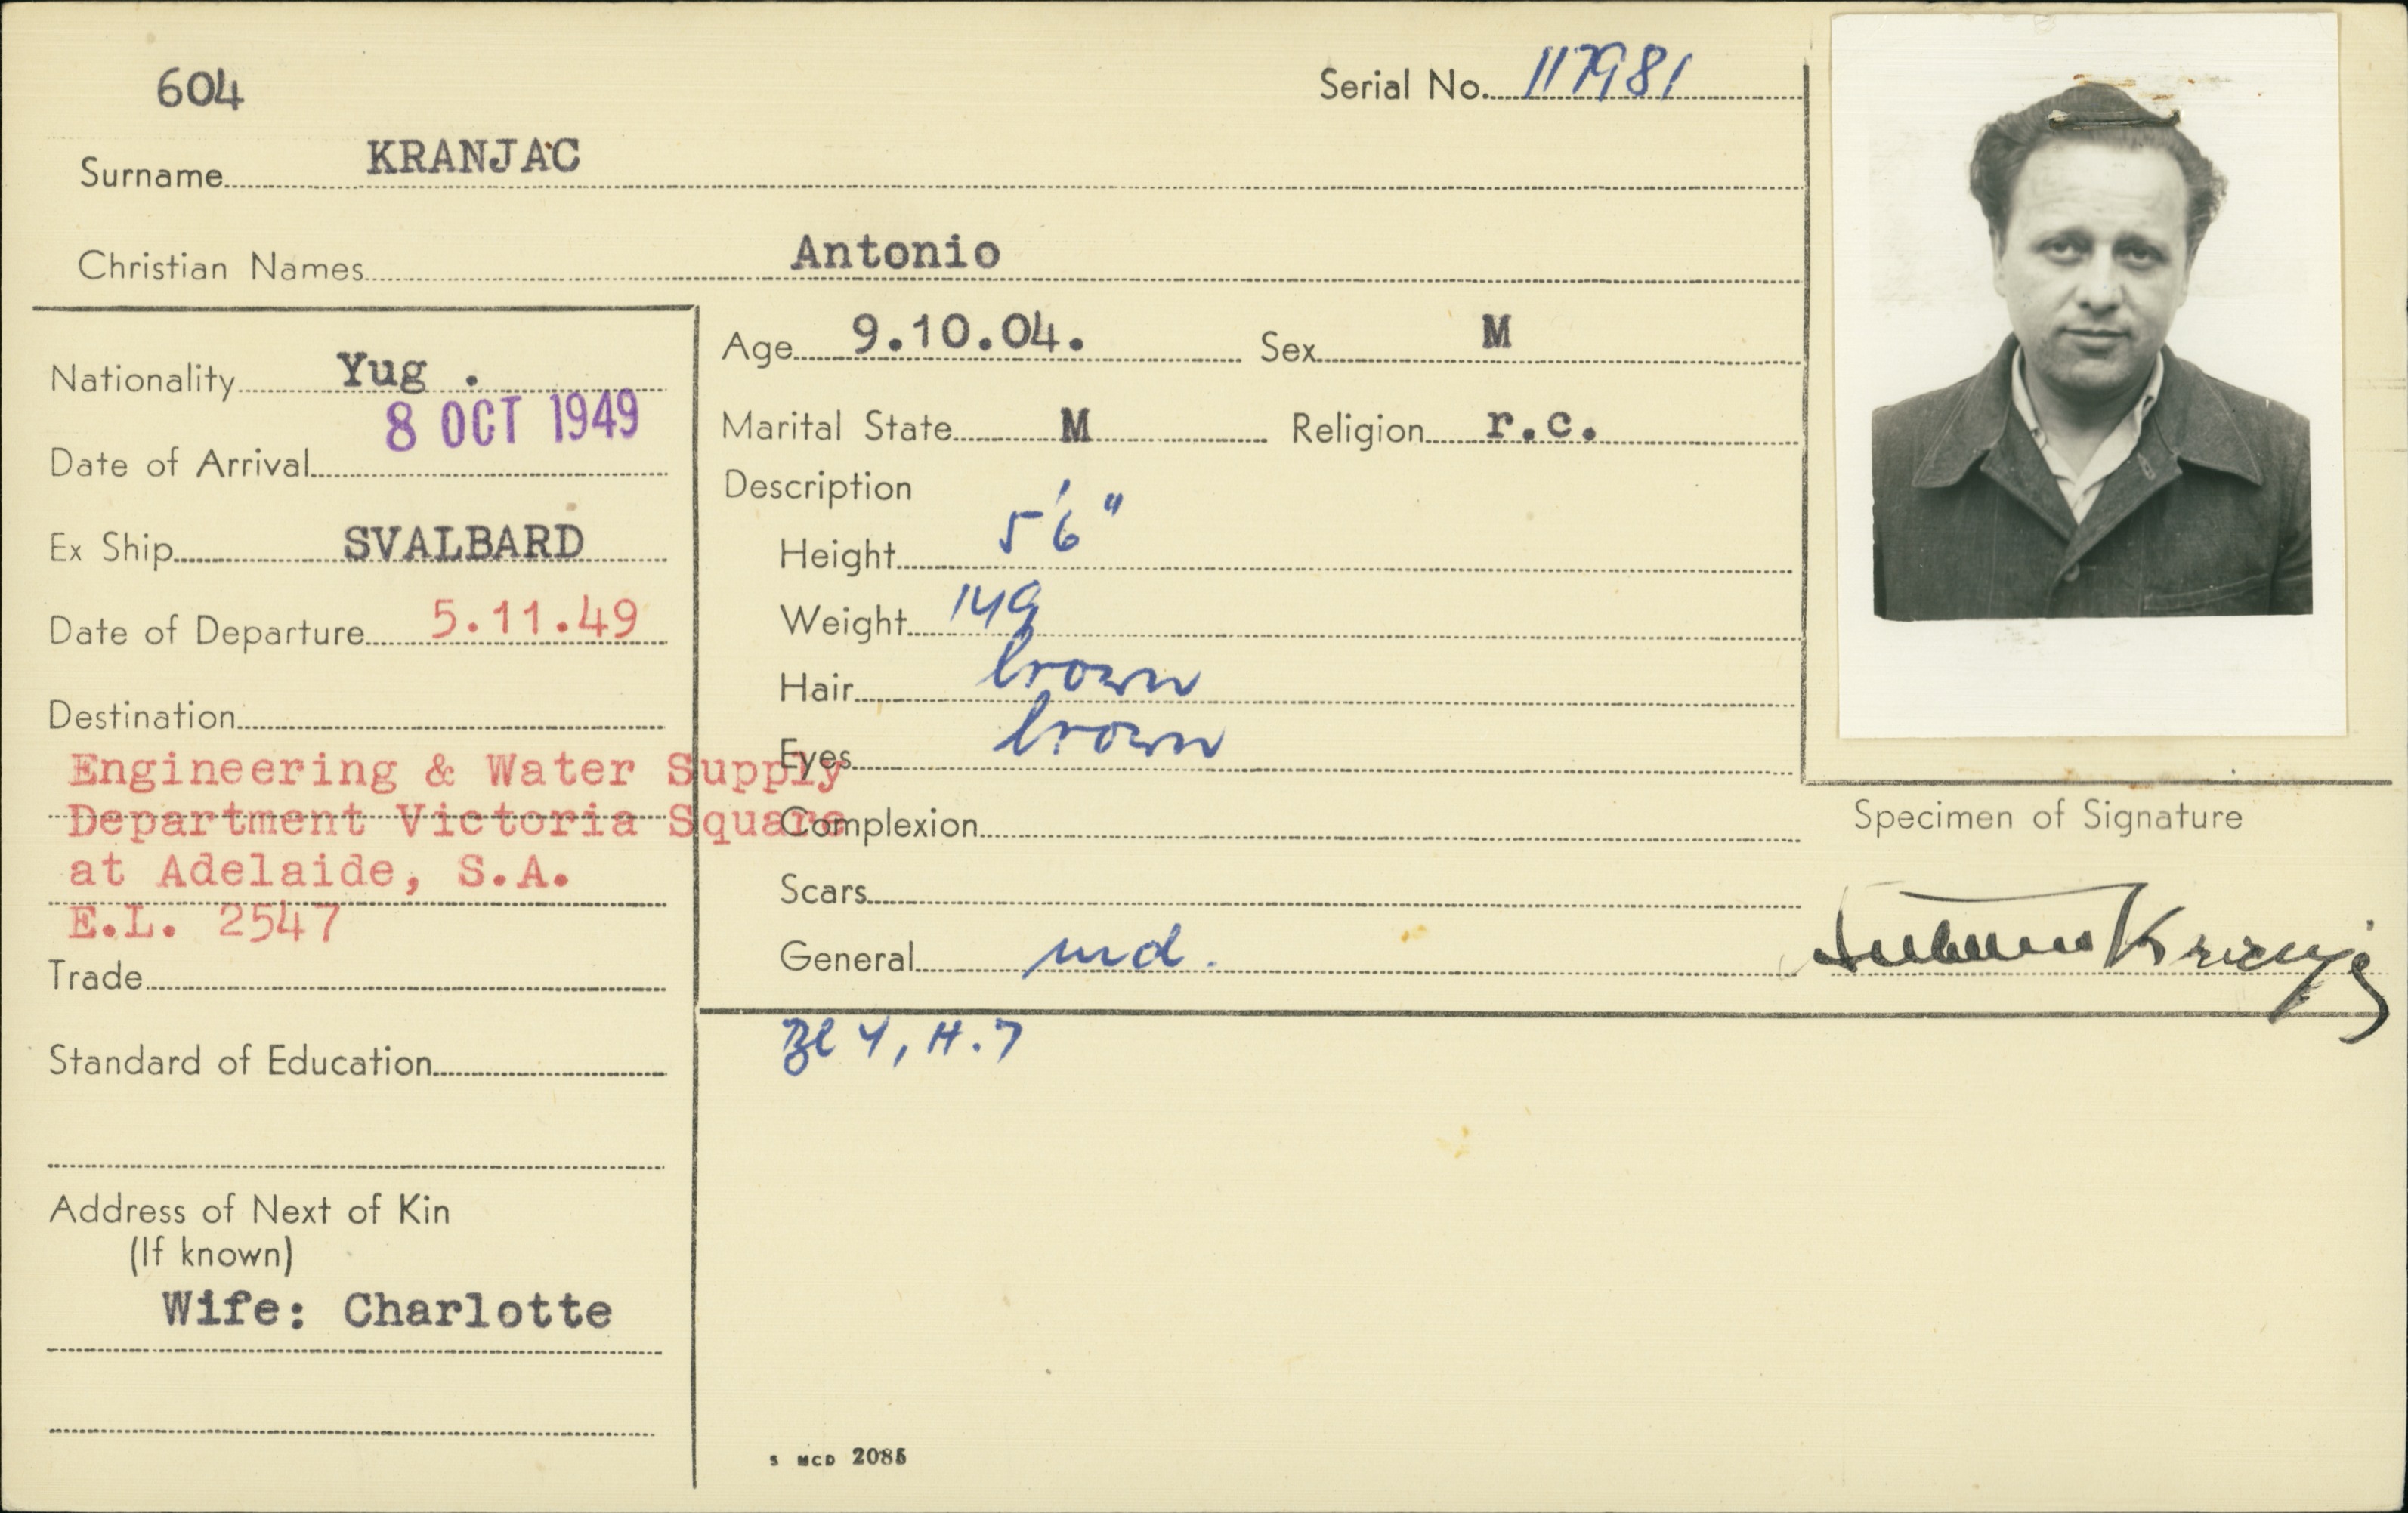 604
Serial No. 117981
Surname KRANJAC
Christian Names Antonio
Nationality Yug .
Date of Arrival 8 OCT 1949
Ex Ship SVALBARD
Date of Departure 5.11.49
Destination
Engineering & Water Supply
Department Victoria Square
at Adelaide, S.A.
E.L. 2547
Trade
Standard of Education
Address of Next of Kin
(If known)
Wife: Charlotte
Age 9.10.04. Sex M
Marital State M Religion r.c.
Description
Height 5'6"
Weight 149
Hair brown
Eyes brown
Complexion
Scars
General md.
Bl 4, H.7
S MCD 2086
Specimen of Signature